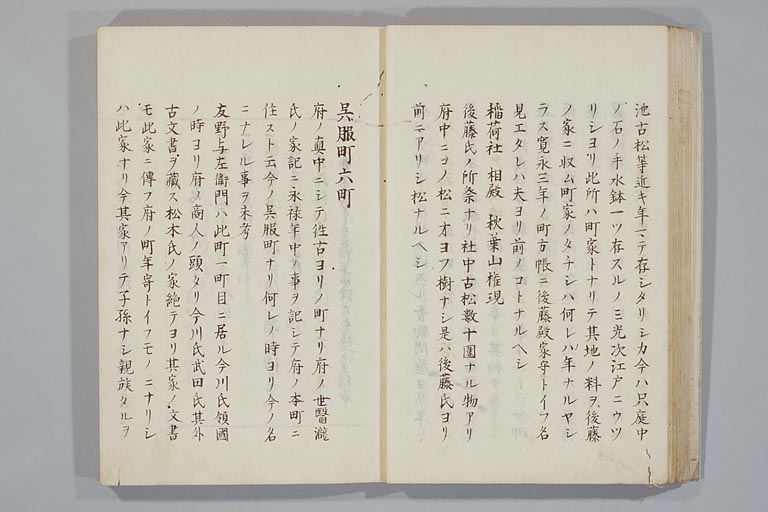 池古松等近キ年マテ存シタリシカ今ハ只庭中
ノ石ノ手水鉢一ツ存スルノミ光次江戸ニウツ
リシヨリ此所ハ町家トナリテ其地ノ料ヲ後藤
ノ家ニ収ム町家ノタチシハ何レノ年ナルヤシ
ラス寛永三年ノ町方帳ニ後藤殿家守トイフ名
見エタレハ夫ヨリ前ノコトナルヘシ
稲荷社 相殿 秋葉山権現
後藤氏ノ所祭ナリ社中古松数十圍ナル物アリ
府中ニコノ松ニオヨフ樹ナシ是ハ後藤氏ヨリ
前ニアリシ松ナルヘシ
呉服町六町
府ノ真中ニシテ往古ヨリノ町ナリ府ノ世醫瀧
氏ノ家記ニ永禄年中ノ事ヲ記シテ府ノ本町ニ
住スト云今ノ呉服町ナリ何レノ時ヨリ今ノ名
ニナレル事ヲ未考
友野与左衛門ハ此町一町目ニ居ル今川氏領國
ノ時ヨリ府ノ商人ノ頭タリ今川氏武田氏其外
古文書ヲ藏ス松本氏ノ家絶テヨリ其家ノ文書
モ此家ニ傳フ府ノ町年寄トイフモノニナリシ
ハ此家ナリ今其家アリテ子孫ナシ親族タルヲ